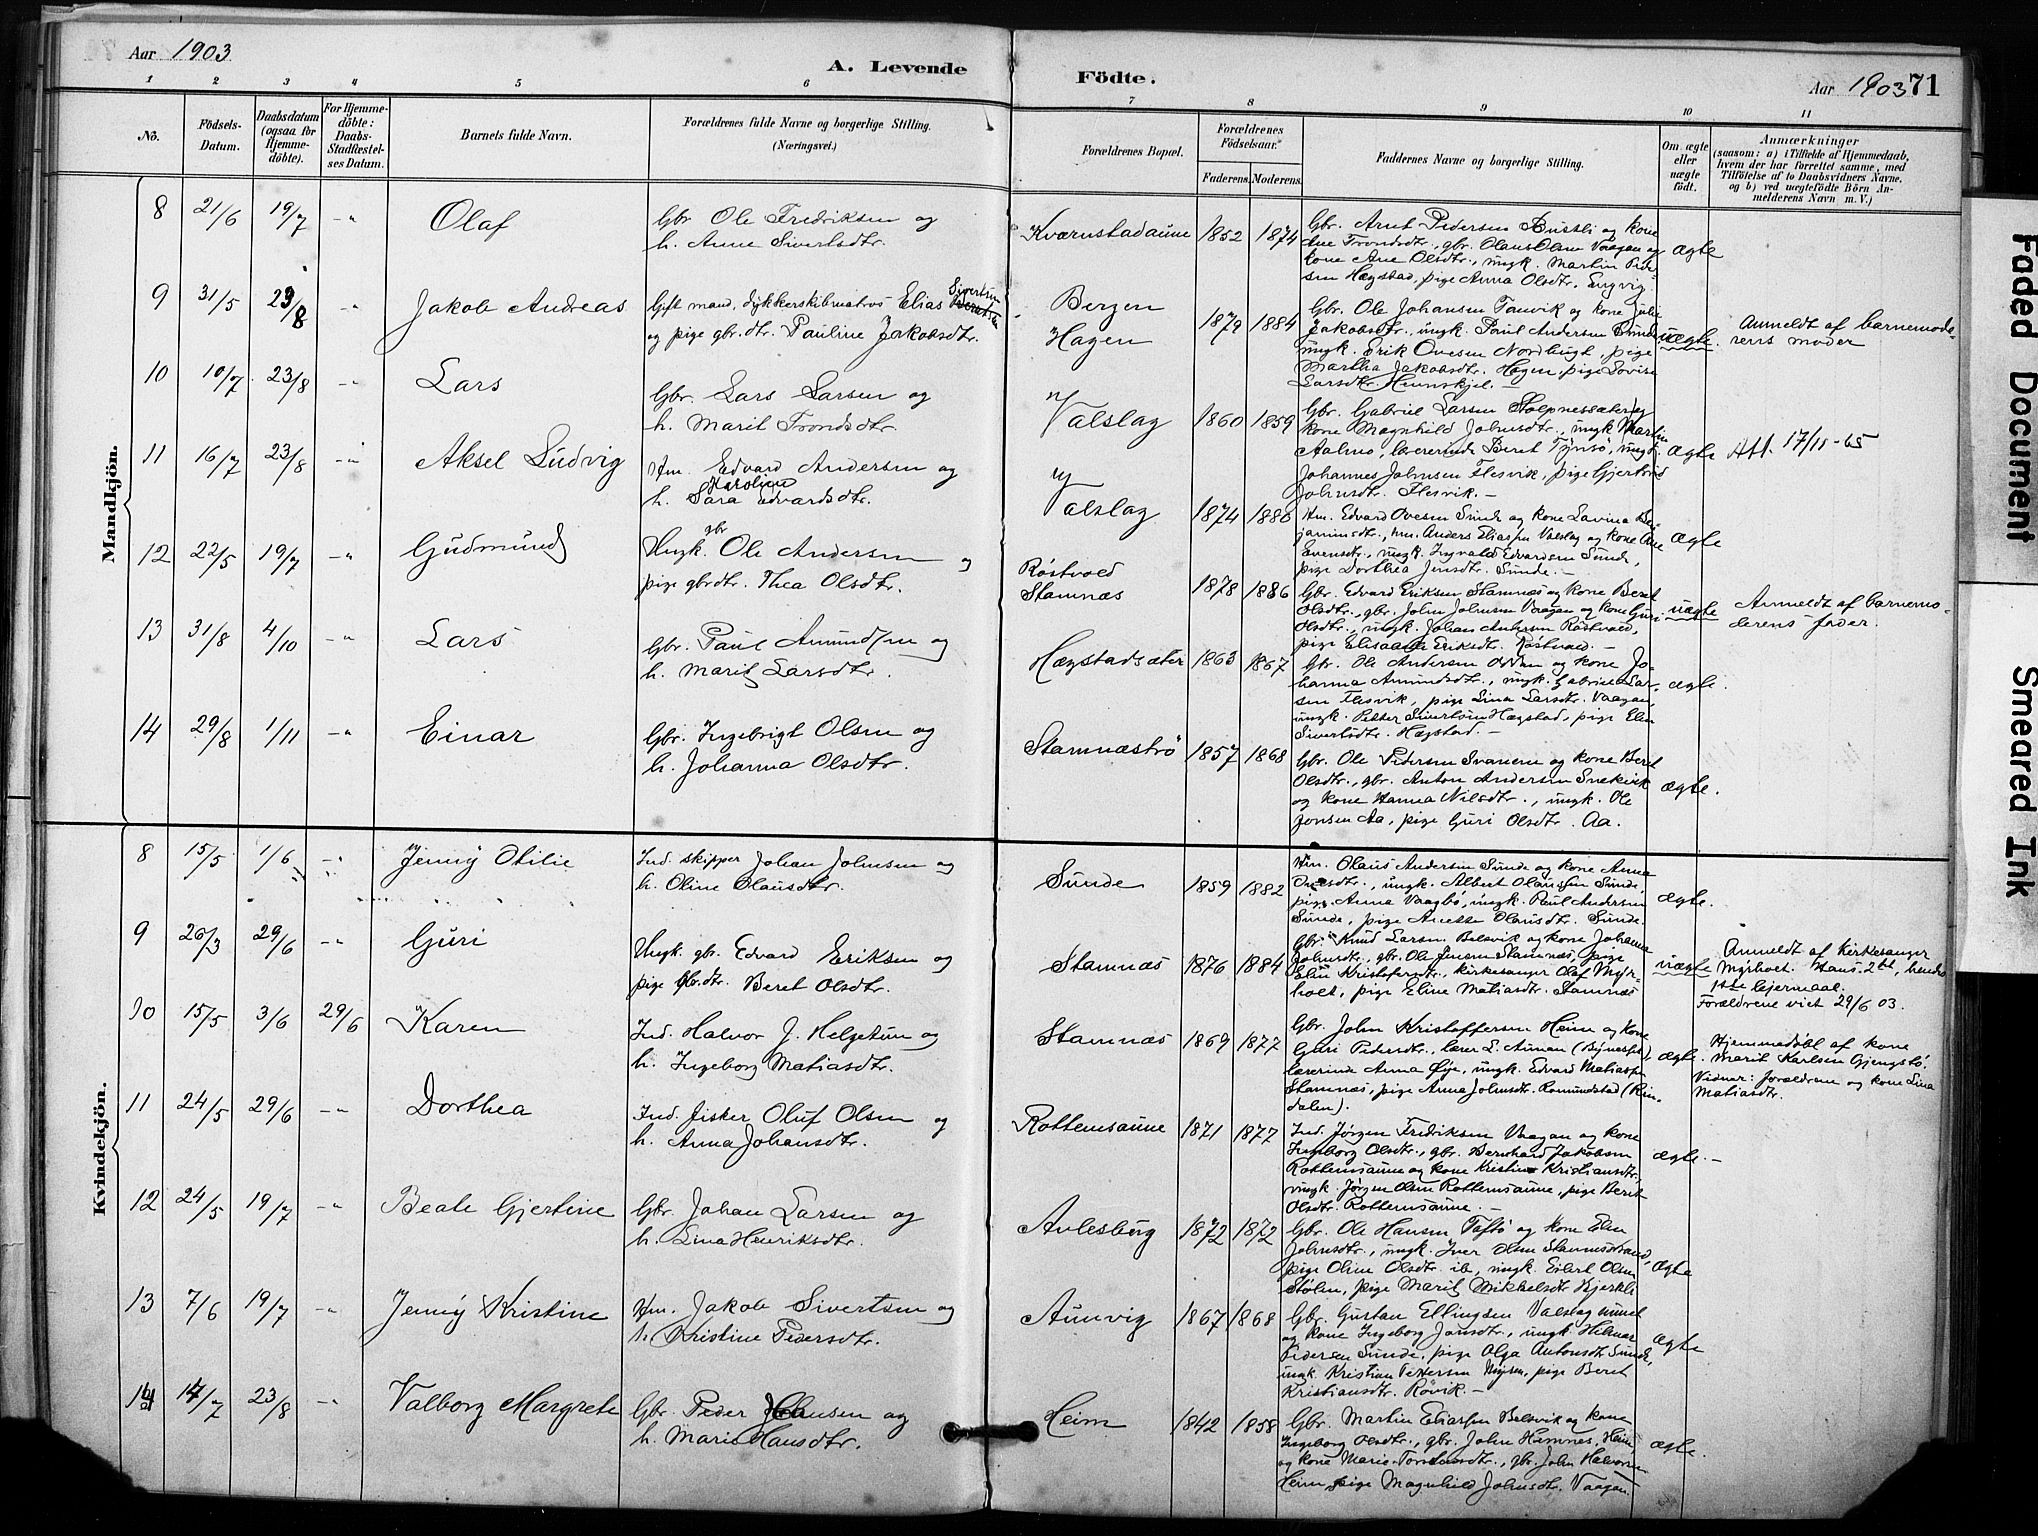 Aar 1903
A. Levende Födte.
Aar 1903 71
1 2 3 4 5 6 7 8 9 10 11
No.
Födsels-Datum.
Daabsdatum (ogsaa for Hjemme-döbte).
For Hjemme-döbte: Daabs-Stadfæstel-ses Datum.
Barnets fulde Navn.
Forældrenes fulde Navne og borgerlige Stilling.
(Næringsvei.)
Forældrenes Bopæl.
Forældrenes Födselsaar.
Faderens. Moderens.
Faddernes Navne og borgerlige Stilling.
Om ægte eller uægte födt.
Anmærkninger
(saasom: a) i Tilfælde af Hjemmedaab,
hvem der har forrettet samme, med
Tilföielse af to Daabsvidners Navne.
og b) ved uegtefödte Börn An-
melderens Navn m. V.)
Mandkjön.
8 21/6 19/7 -"- Olaf
Gbr. Ole Fredriksen og
h. Anne Sivertsdtr.
Kværnstadaune 1852 1874
Gbr. Arnt Pedersen Busetli og kone
Ane Trondsdtr., gbr. Olaus Olsen Vaagan og
kone Ane Olsdtr., ungk. Martin Peder-
sen Hægstad, pige Anna Olsdtr. Engvig.
ægte
9 31/5 23/8 -"- Jakob Andreas
Gift mand, dykkerskibmatros Elias Sivertsen
og pige gbr.dtr. Pauline Jakobsdtr.
Bergen
Hagen
1879 1884
Gbr. Ole Johansen Tanvik og kone Julie
Jakobsdtr., ungk. Paul Andersen Sunde,
ungk. Erik Ovesen Nordbugt, pige
Martha Jakobsdtr. Hagen, pige Lovise
Larsdtr. Hemskjel. -
uægte.
Anmeldt af barnemode-
rens moder
10 10/7 23/8 -"- Lars
Gbr. Lars Larsen og
h. Marit Trondsdtr.
Valslag 1860 1859
Gbr. Gabriel Larsen Stolpnessæter og
kone Magnhild Johnsdtr., ungk Martin
Aalmo, lærerinde Beret Tynsö, ungk.
Johannes Johnsen Flesvik, pige Gjertrud
Johnsdtr. Flesvik. -
ægte
Att. 17/11-65
11 16/7 23/8 -"- Aksel Ludvig
Hm. Edvard Andersen og
h. Sara Karoline Edvardsdtr.
Valslag 1874 1880
Hm. Edvard Ovesen Sunde og kone Lavina Ben-
jaminsdtr., hm. Anders Eliassen Valslag og kone Ane
Evensdtr., ungk. Ingvald Edvardsen Sunde,
pige Dorthea Jensdtr. Sunde. -
ægte
12 22/5 19/7 -"- Gudmund
Ungk. gbr. Ole Andersen og
pige gbr.dtr. Thea Olsdtr.
Röstvold
Stamnæs
1878 1886
Gbr. Edvard Eriksen Stamnæs og kone Beret
Olsdtr., gbr. John Johnsen Vaagan og kone Guri
Olsdtr., ungk. Johan Andersen Röstvold,
pige Elisabeth Eriksdtr. Röstvold. -
uægte
Anmeldt af barnemo-
derens fader.
13 31/8 4/10 -"- Lars
Gbr. Paul Amundsen og
h. Marit Larsdtr.
Hægstadsæter 1863 1867
Gbr. Ole Andersen og kone Jo-
hanna Amundsdtr., ungk. Gabriel Lar-
sen Flesvik, pige Lina Larsdtr. Vaagan,
ungk. Petter Sivertsen Hægstad, pige Elen
Sivertsdtr. Hægstad. -
ægte.
14 29/8 1/11 -"- Einar
Gbr. Ingebrigt Olsen og
h. Johanna Olsdtr.
Stamnæströ 1857 1868
Gbr. Ole Pedersen Svanem og kone Beret
Olsdtr., gbr. Anton Andersen Snekvik
og kone Hanna Nilsdtr., ungk. Ole
Jonsen Aa, pige Guri Olsdtr. Aa.
ægte.
Kvindekjön.
8 15/5 1/6 -"- Jenny Otilie
Ind. skipper Johan Johnsen og
h. Oline Olausdtr.
Sunde 1859 1882
Hm. Olaus Andersen Sunde og kone Anna
Ovesdtr., ungk. Albert Olaussen Sunde,
pige Anna Vaagbö, ungk. Paul Andersen
Sunde, pige Anette Olausdtr. Sunde.
ægte.
9 20/3 29/6 -"- Guri
Ungk. gbr. Edvard Eriksen og
pige gbr.dtr. Beret Olsdtr.
Stamnæs 1876 1884
Gbr. Knud Larsen Belsvik og kone Johanna
Johnsdtr., gbr. Ole Jensen Stamnæs, pige
Elen Kristofersdtr., kirkesanger Olaf Myr-
holt, pige Eline Matiasdtr. Stamnæs
uægte
Anmeldt af kirkesanger
Myrholt. Hans 2det, hendes
1ste leiermaal.
Forældrene viet 29/6 03.
10 15/5 3/6 29/6 Karen
Ind. Halvor J. Helgetun og
h. Ingeborg Matiasdtr.
Stamnæs 1869 1877
Gbr. John Kristoffersen Heim og kone
Guri Pedersdtr., lærer L. Aunan (Bynesset),
lærerinde Anna Öye, ungk. Edvard Matiassen
Stamnæs, pige Anna Johnsdtr. Romundstad (Rin-
dalen).
ægte.
Hjemmedöbt af kone
Marit Karlsen Gjengstö.
Vidner: forældrene og kone Lina
Matiasdtr.
11 24/5 29/6 -"- Dorthea
Ind. fisker Oluf Olsen og
h. Anna Johansdtr.
Rottemsaune 1871 1877
Ind. Jörgen Fredriksen Vaagan og kone
Ingeborg Olsdtr., gbr. Bernhard Jakobsen
Rottemsaune og kone Kristine Kristiansdtr.
ungk. Jörgen Olsen Rottemsaune, pige Berit
Olsdtr. Rottemsaune. -
ægte. -
12 24/5 19/7 -"- Beate Gjertine
Gbr. Johan Larsen og
h. Lina Henriksdtr.
Aulesbug 1872 1872
Gbr. Ole Hansen Taftö og kone Elen
Johnsdtr., ungk. Iver Olsen Stamnesstrand,
pige Oline Olsdtr. ib., ungk. Eilert Olsen
Stölen, pige Marit Mikkelsdtr. Bjerkli
ægte
13 7/6 19/7 -"- Jenny Kristine
Hm. Jakob Sivertsen og
h. Kristine Pedersdtr.
Aunvig 1867 1868
Gbr. Gustav Ellingsen Valslag
og kone Ingeborg Jonsdtr., ungk. Hilmar
Pedersen Sunde, pige Olga Antonsdtr. Sunde,
ungk. Kristian Pettersen, pige Beret
Kristiansdtr. Rövik. -
ægte
14 14/7 23/8 -"- Valborg Margrete
Gbr. Peder Hansen og
h. Marie Hansdtr.
Heim 1842 1858
Gbr. Martin Eliassen Belsvik og kone
Ingeborg Olsdtr., gbr. John Hemnes, Heim,
og kone Marie, gbr. John Halvorsen
Heim, pige Magnhild Johnsdtr. Vaagan.
ægte.
Faded Document
Smeared Ink